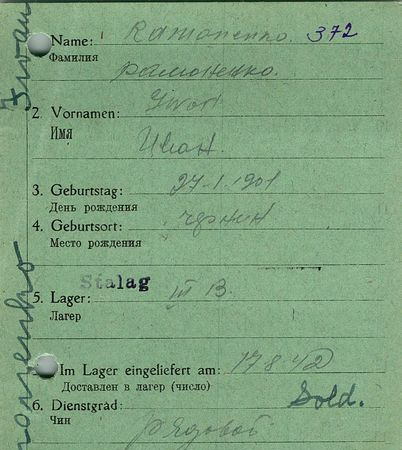 Name: Ramonenko 372
Фамилия
рамоненко.
2. Vornamen: Iwan
Имя
Иван.
3. Geburtstag: 27.1.1901
День рождения
4. Geburtsort:
Место рождения
Stalag
5. Lager: III B.
Лагерь
Im Lager eingeliefert am: 17.8.42
Доставлен в лагерь (число)
6. Dienstgrad: Sold.
Чин
рядовой
Iwan